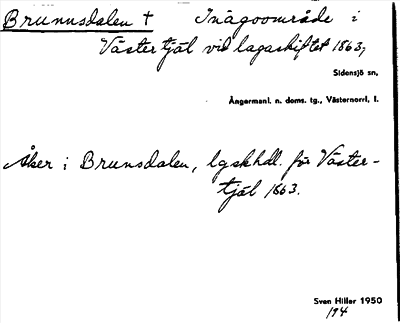 Brunnsdalen † Inägoområde i
Västertjäl vid lagaskiftet 1863,
Sidensjö sn,
Ångermanl. n. doms. tg., Västernorrl. l.
Åker i Brunsdalen, lgskhdl. för Väster-
tjäl 1863.
Sven Hiller 1950
194